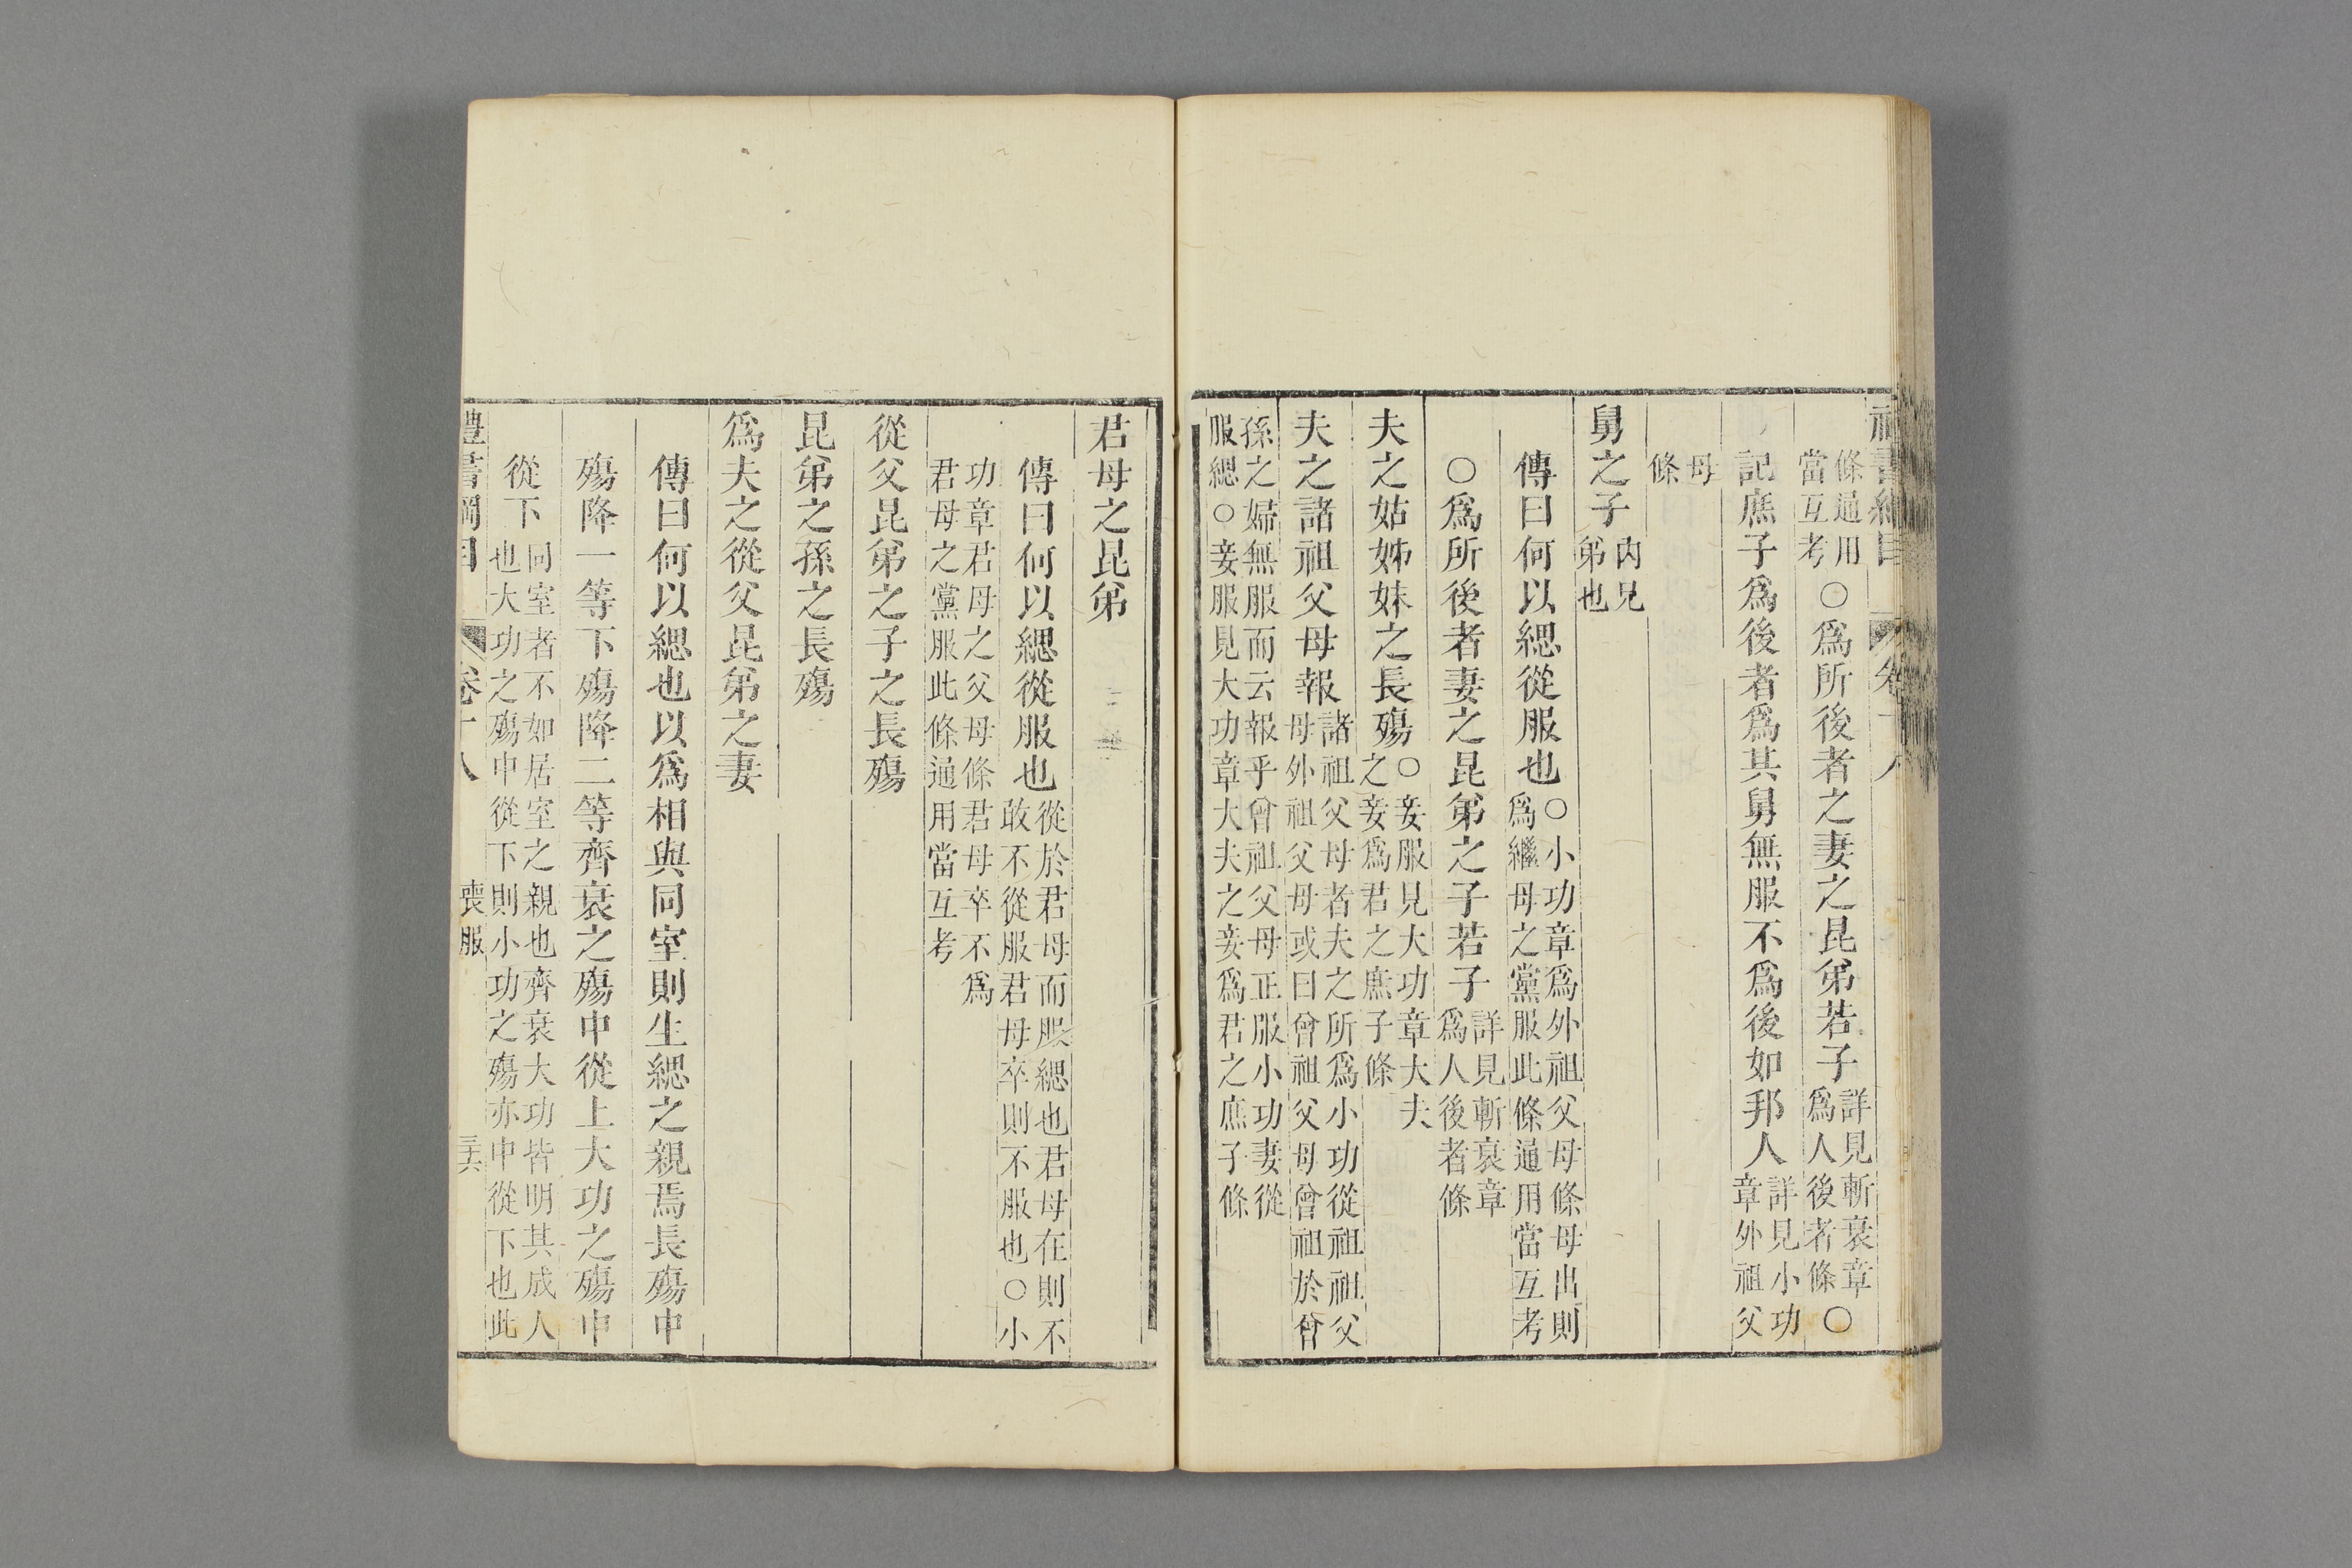 禮書綱目 卷十八
條通用當互考○爲所後者之妻之昆弟若子詳見斬衰章爲人後者條○
記庶子爲後者爲其舅無服不爲後如邦人詳見小功章外祖父
母條
舅之子內兄弟也
傳曰何以緦從服也○小功章爲外祖父母條母出則爲繼母之黨服此條通用當互考
○爲所後者妻之昆弟之子若子詳見斬衰章爲人後者條
夫之姑姊妹之長殤○妾服見大功章大夫之妾爲君之庶子條
夫之諸祖父母報諸祖父母者夫之所爲小功從祖祖父母外祖父母或曰曾祖父母曾祖於曾
孫之婦無服而云報乎曾祖父母正服小功妻從服緦○妾服見大功章大夫之妾爲君之庶子條
君母之昆弟
傳曰何以緦從服也從於君母而服緦也君母在則不敢不從服君母卒則不服也○小
功章君母之父母條君母卒不爲君母之黨服此條通用當互考
從父昆弟之子之長殤
昆弟之孫之長殤
爲夫之從父昆弟之妻
傳曰何以緦也以爲相與同室則生緦之親焉長殤中
殤降一等下殤降二等齊衰之殤中從上大功之殤中
從下同室者不如居室之親也齊衰大功皆明其成人也大功之殤中從下則小功之殤亦中從下也此
禮書綱目 卷十八 喪服 三六